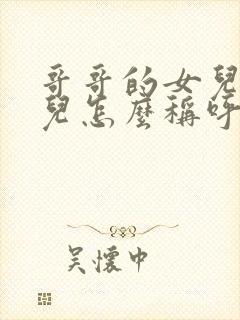 哥哥的女兒
兒怎麼稱呼
吳懷中